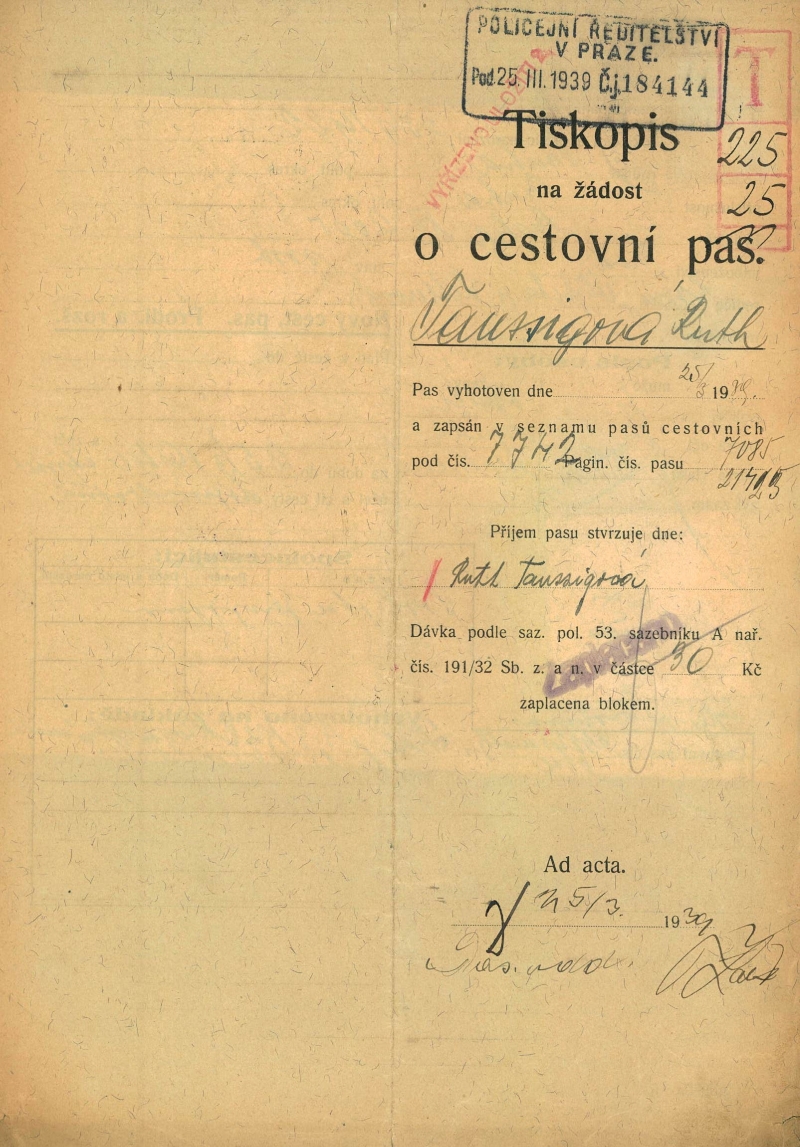 POLICEJNÍ ŘEDITELSTVÍ
V PRAZE.
Pod. 25. III. 1939 Č.j. 184144
T
Tiskopis
225
na žádost
25
o cestovní pas.
Taussigová Ruth
Pas vyhotoven dne 25/3 1939.
a zapsán v seznamu pasů cestovních
pod čís. 7742 Pagin. čís. pasu 7085
Příjem pasu stvrzuje dne:
Ruth Taussigová
Dávka podle saz. pol. 53. sazebníku A nař.
čís. 191/32 Sb. z. a n. v částce 30 Kč
zaplacena blokem.
Ad acta.
25/3. 1939